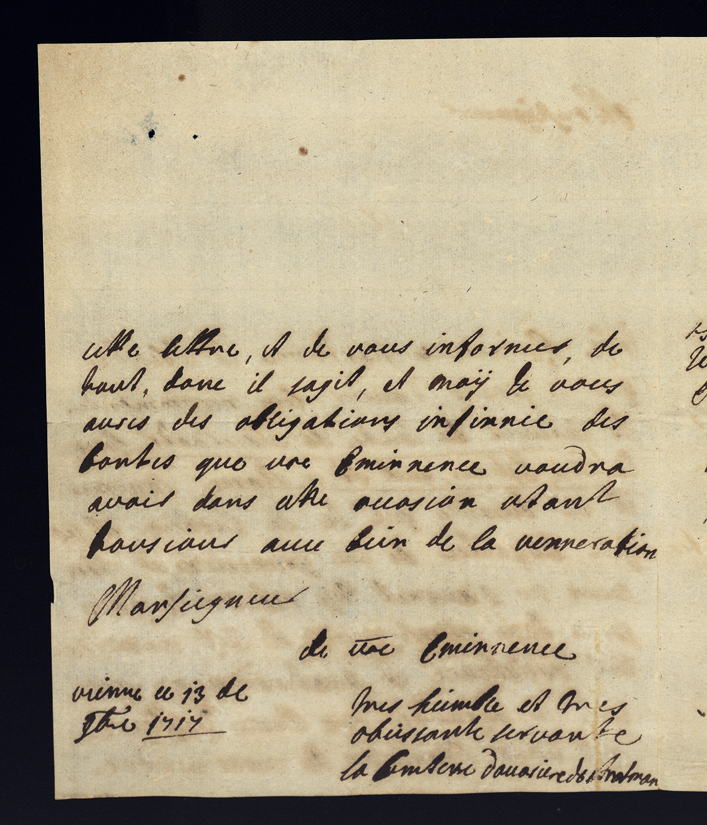 cette lettre, et de vous informer, de
tout, donc il sagit, et moÿ Je vous
aures des obligations infinnie des
bontes que vre Eminnence voudra
avoir dans cette occasion estant
tousiours avec bien de la venneration
Monseigneur
de vre Eminnence
vienne ce 13 de
9bre 1717
tres humble et tres
obeissante servante
la Comtesse douariere de